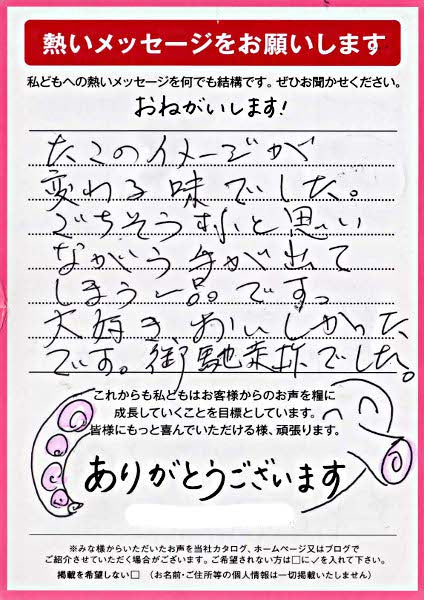 熱いメッセージをお願いします
私どもへの熱いメッセージを何でも結構です。ぜひお聞かせください。
おねがいします!
たこのイメージが
変わる味でした。
ごちそうすぎと思い
ながらう手が出て
しまう一品です。
大好き、おいしかった
です。御馳走様でした。
これからも私どもはお客様からのお声を糧に
成長していくことを目標としています。
皆様にもっと喜んでいただける様、頑張ります。
ありがとうございます
※みな様からいただいたお声を当社カタログ、ホームページ又はブログで
ご紹介させていただく場合がございます。ご希望されない方は□に✓を入れて下さい。
掲載を希望しない□ (お名前・ご住所等の個人情報は一切掲載いたしません)